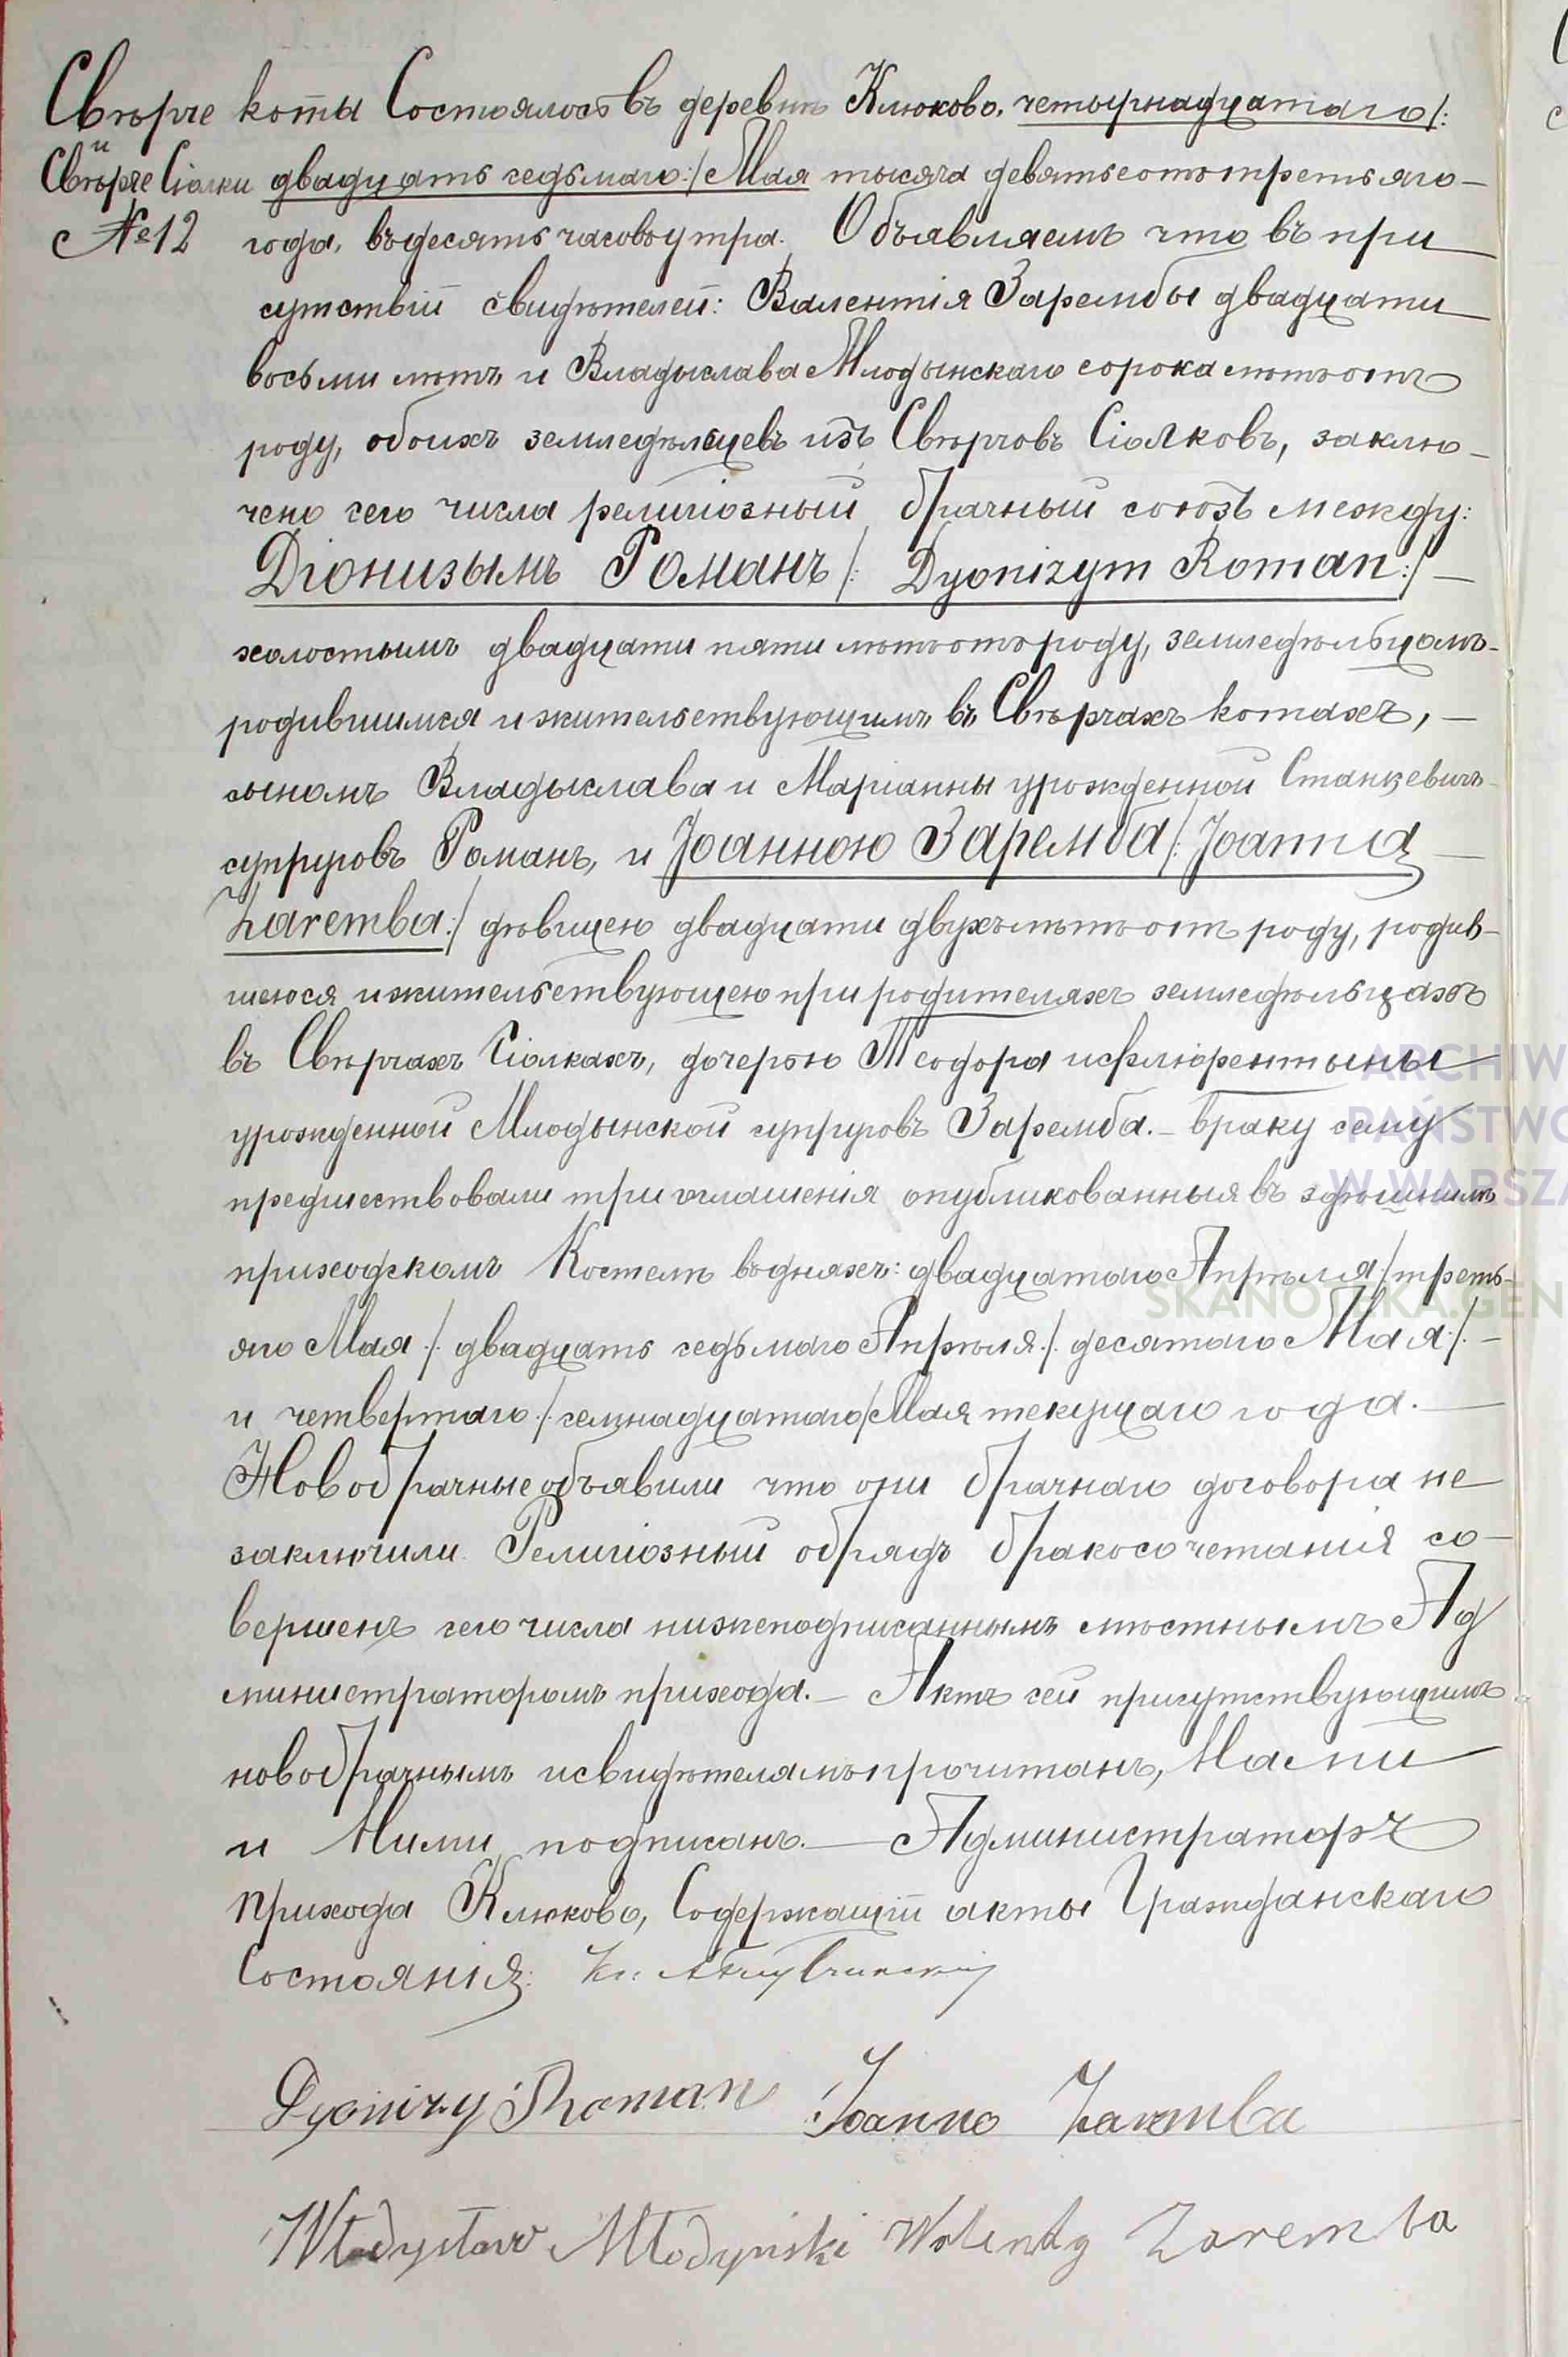 Свѣрче коты Состоялось въ деревнѣ Клюково, четырнадцатаго/:
и
Свѣрче Сіолки двадцать седьмаго:/ Мая тысяча девятьсотъ третьяго —
№ 12 года, въ десять часовъ утра. Объявляемъ что въ при
сутствіи свидѣтелей: Валентія Зарембы двадцати
восьми лѣтъ и Владыслава Млодынскаго сорока лѣтъ отъ
роду, обоихъ земледѣльцевъ изъ Свѣрчовъ Сіолковъ, заклю-
чено сего числа религіозный брачный союзъ между:
Діонизымъ Романъ /: Dyonizym Roman :/ —
холостымъ двадцати пяти лѣтъ отъ роду, земледѣльцомъ-
родившимся и жительствующимъ въ Свѣрчахъ котахъ, —
сыномъ Владыслава и Маріанны урожденной Станкевичъ-
супруговъ Романъ, и Іоанною Заремба /: Joanną —
Zaremba :/ дѣвицею двадцати двухъ лѣтъ отъ роду, родив-
шеюся и жительствующею при родителяхъ земледѣльцахъ
въ Свѣрчахъ Сіолкахъ, дочерью Теофора и Флюрентыны
урожденной Млодынской супруговъ Заремба. — Браку сему
предшествовали три оглашенія опубликованныя въ здѣшнимъ
приходскомъ Костелѣ въ дняхъ: двадцатаго Апрѣля /треть-
яго Мая :/ двадцать седьмаго Апрѣля :/ десятаго Мая :/ —
и четвертаго :/ семнадцатаго/ Мая текущаго года. —
Новобрачные объявили что они брачнаго договора не
заключили. Религіозный обрядъ бракосочетанія со-
вершенъ сего числа нижеподписаннымъ мѣстнымъ Ад
министраторомъ прихода. — Актъ сей присутствующимъ
новобрачнымъ и свидѣтелямъ прочитанъ, Нами
и Ними подписанъ. — Администраторъ
прихода Клюково, Содержащій акты Гражданскаго
Состоянія:
Dyonizy Roman Joanna Zaremba
Władysław Młodyński Walenty Zaremba
ARCHIW
PAŃSTWO
W WARSZA
SKANOTEKA.GEN